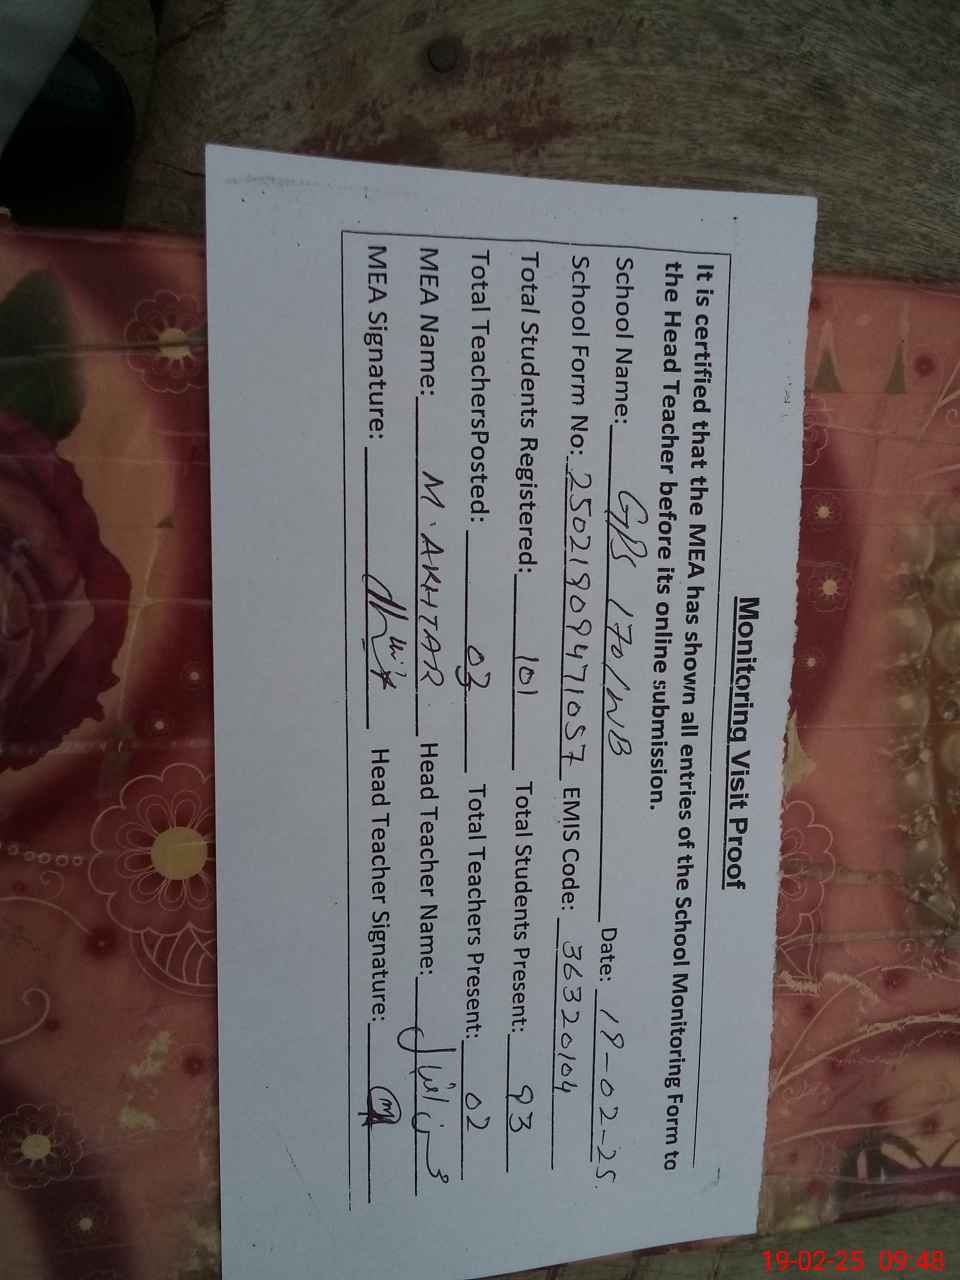 Monitoring Visit Proof
It is certified that the MEA has shown all entries of the School Monitoring Form to
the Head Teacher before its online submission.
School Name: GPS 170/WB Date: 19-02-25.
School Form No: 25021909471057 EMIS Code: 36320104
Total Students Registered: 101 Total Students Present: 93
Total TeachersPosted: 03 Total Teachers Present: 02
MEA Name: M. AKHTAR Head Teacher Name:
MEA Signature: Head Teacher Signature:
19-02-25 09:48